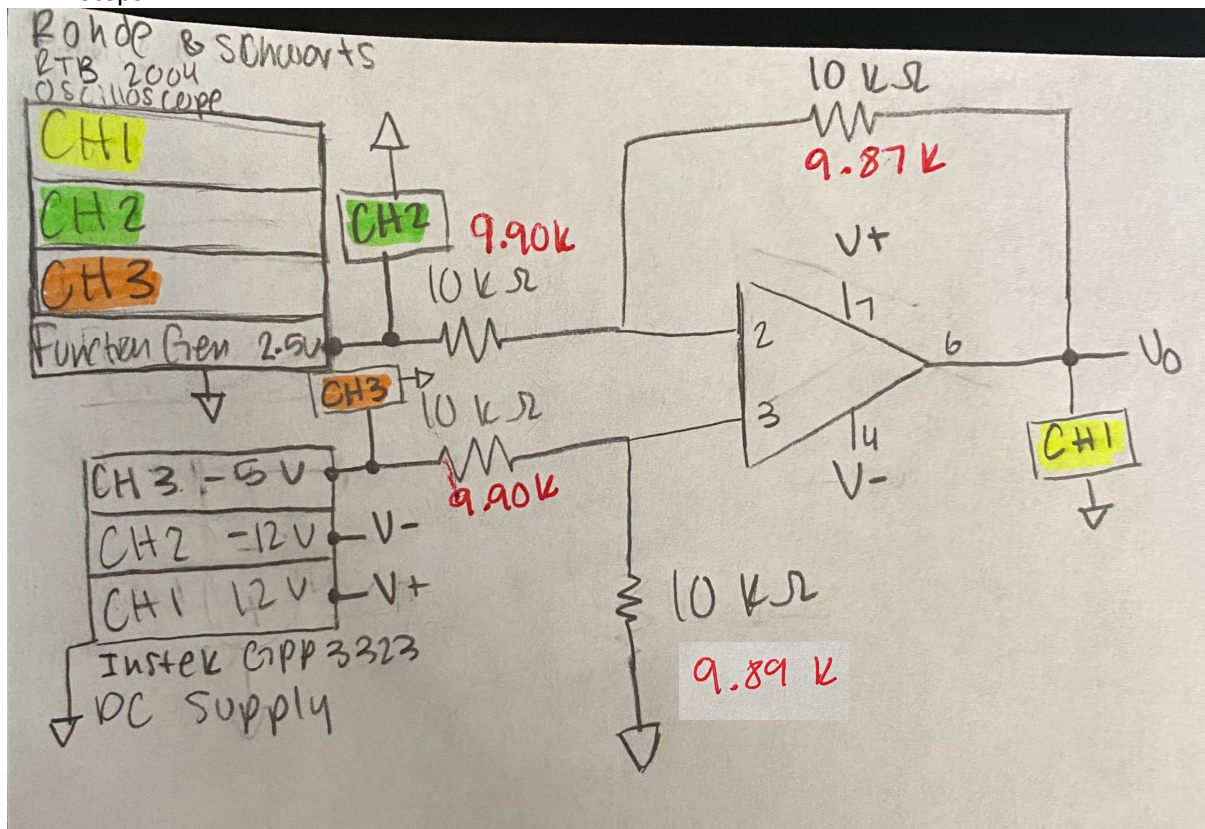 Rohde & Schwarts
RTB 2004
Oscilloscope
CH1
CH2
CH3
Function Gen 2.5V
CH2
9.90k
10 KΩ
10 KΩ
9.87K
V+
7
2
3
6
4
V-
Vo
CH1
CH3
10 KΩ
9.90K
CH 3 -5 V
CH2 -12V
V-
CH1 12V
V+
Instek GPP3323
DC Supply
10 KΩ
9.89 K